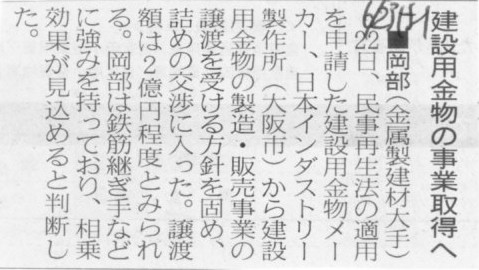 建設用金物の事業取得へ
■岡部（金属製建材大手）
22日、民事再生法の適用
を申請した建設用金物メー
カー、日本インダストリー
製作所（大阪市）から建設
用金物の製造・販売事業の
譲渡を受ける方針を固め、
詰めの交渉に入った。譲渡
額は２億円程度とみられ
る。岡部は鉄筋継ぎ手など
に強みを持っており、相乗
効果が見込めると判断し
た。